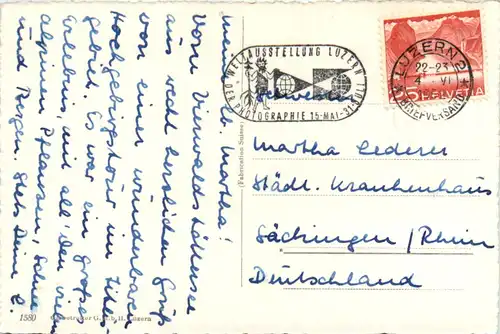 meine lb. Martha!
Vom Vierwaldstättersee
aus recht herzlichen Gruß
von einer wunderbaren
Hochgebirgstour im Titlis-
gebiet. Es war ein großes
Erlebnis mit all' den vielen
alpinen Pflanzen, Schnee
und Bergen. Stets Deine
1580
Luzern
(Fabrication Suisse)
WELTAUSSTELLUNG LUZERN
DER PHOTOGRAPHIE 15·MAI-31·JULI
LUZERN 2
22-23
4. VI
BRIEFVERSAND
HELVETIA
Schwester
Martha Lederer
Städt. Krankenhaus
Säckingen / Rhein
Deutschland